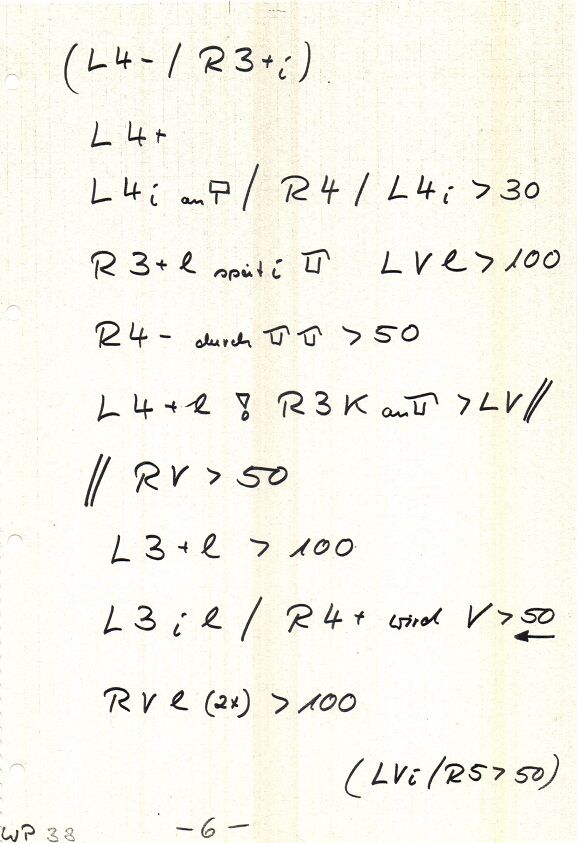 (L4- / R3+i)
L4+
L4i an / R4 / L4i > 30
R3+l spät i LVl > 100
R4- durch > 50
L4+l ! R3K an > LV //
// RV > 50
L3+l > 100
L3il / R4+ wird V > 50
RVl (2x) > 100
(LVi / R5 > 50)
WP 38 - 6 -